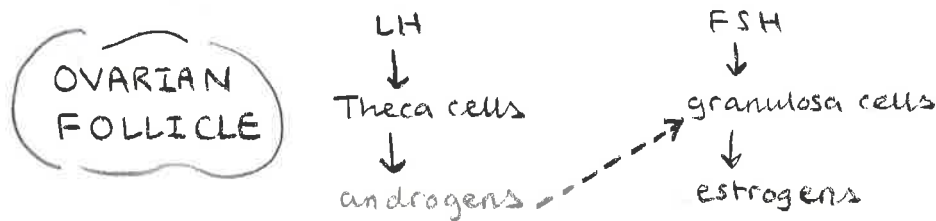 OVARIAN
FOLLICLE
LH
Theca cells
androgens
FSH
granulosa cells
estrogens